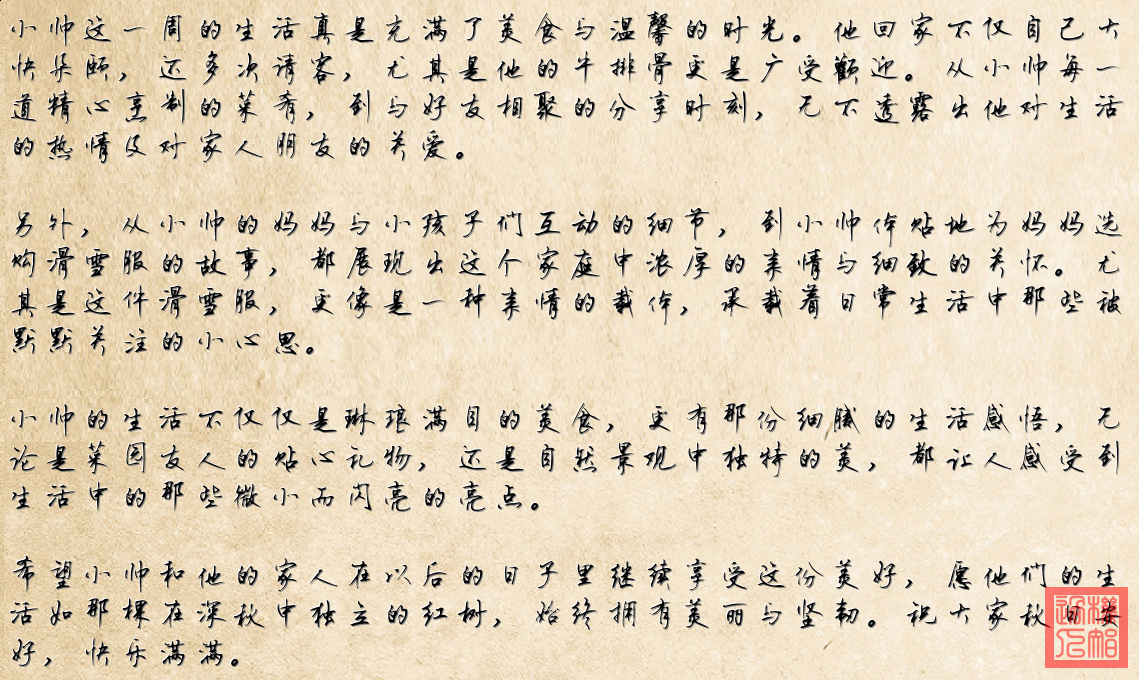 小帅这一周的生活真是充满了美食与温馨的时光。他回家不仅自己大
快朵颐，还多次请客，尤其是他的牛排骨更是广受歡迎。从小帅每一
道精心烹制的菜肴，到与好友相聚的分享时刻，无不透露出他对生活
的热情及对家人朋友的关爱。
另外，从小帅的妈妈与小孩子们互动的细节，到小帅体贴地为妈妈选
购滑雪服的故事，都展现出这个家庭中浓厚的亲情与细致的关怀。尤
其是这件滑雪服，更像是一种亲情的载体，承载着日常生活中那些被
默默关注的小心思。
小帅的生活不仅仅是琳琅满目的美食，更有那份细腻的生活感悟，无
论是菜园友人的贴心礼物，还是自然景观中独特的美，都让人感受到
生活中的那些微小而闪亮的亮点。
希望小帅和他的家人在以后的日子里继续享受这份美好，愿他们的生
活如那棵在深秋中独立的红树，始终拥有美丽与坚韧。祝大家秋日安
好，快乐满满。